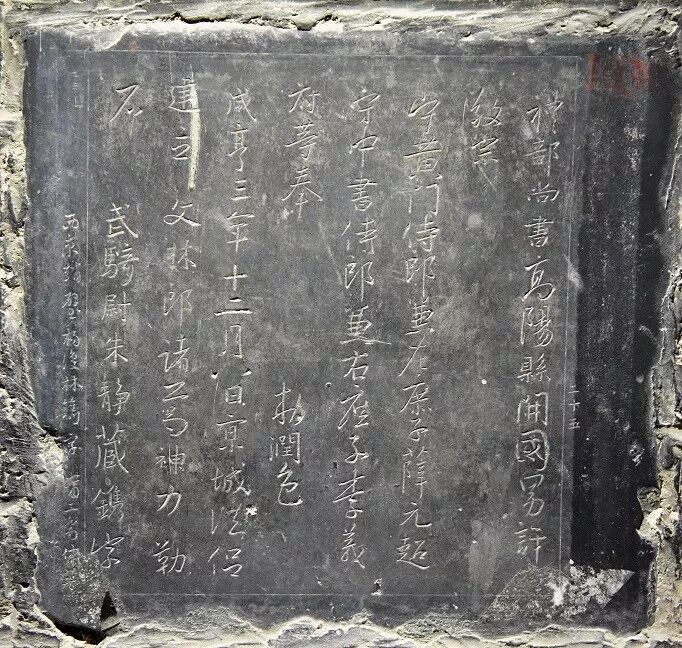 二十五
禮部尚書高陽縣開國男許
敬宗
守黃門侍郎兼左庶子薛元超
守中書侍郎兼右庶子李義
府等奉 敕潤色
咸亨三年十二月八日京城法侶
建立 文林郎諸葛神力勒
石 武騎尉朱靜藏鐫字
西京 林 字